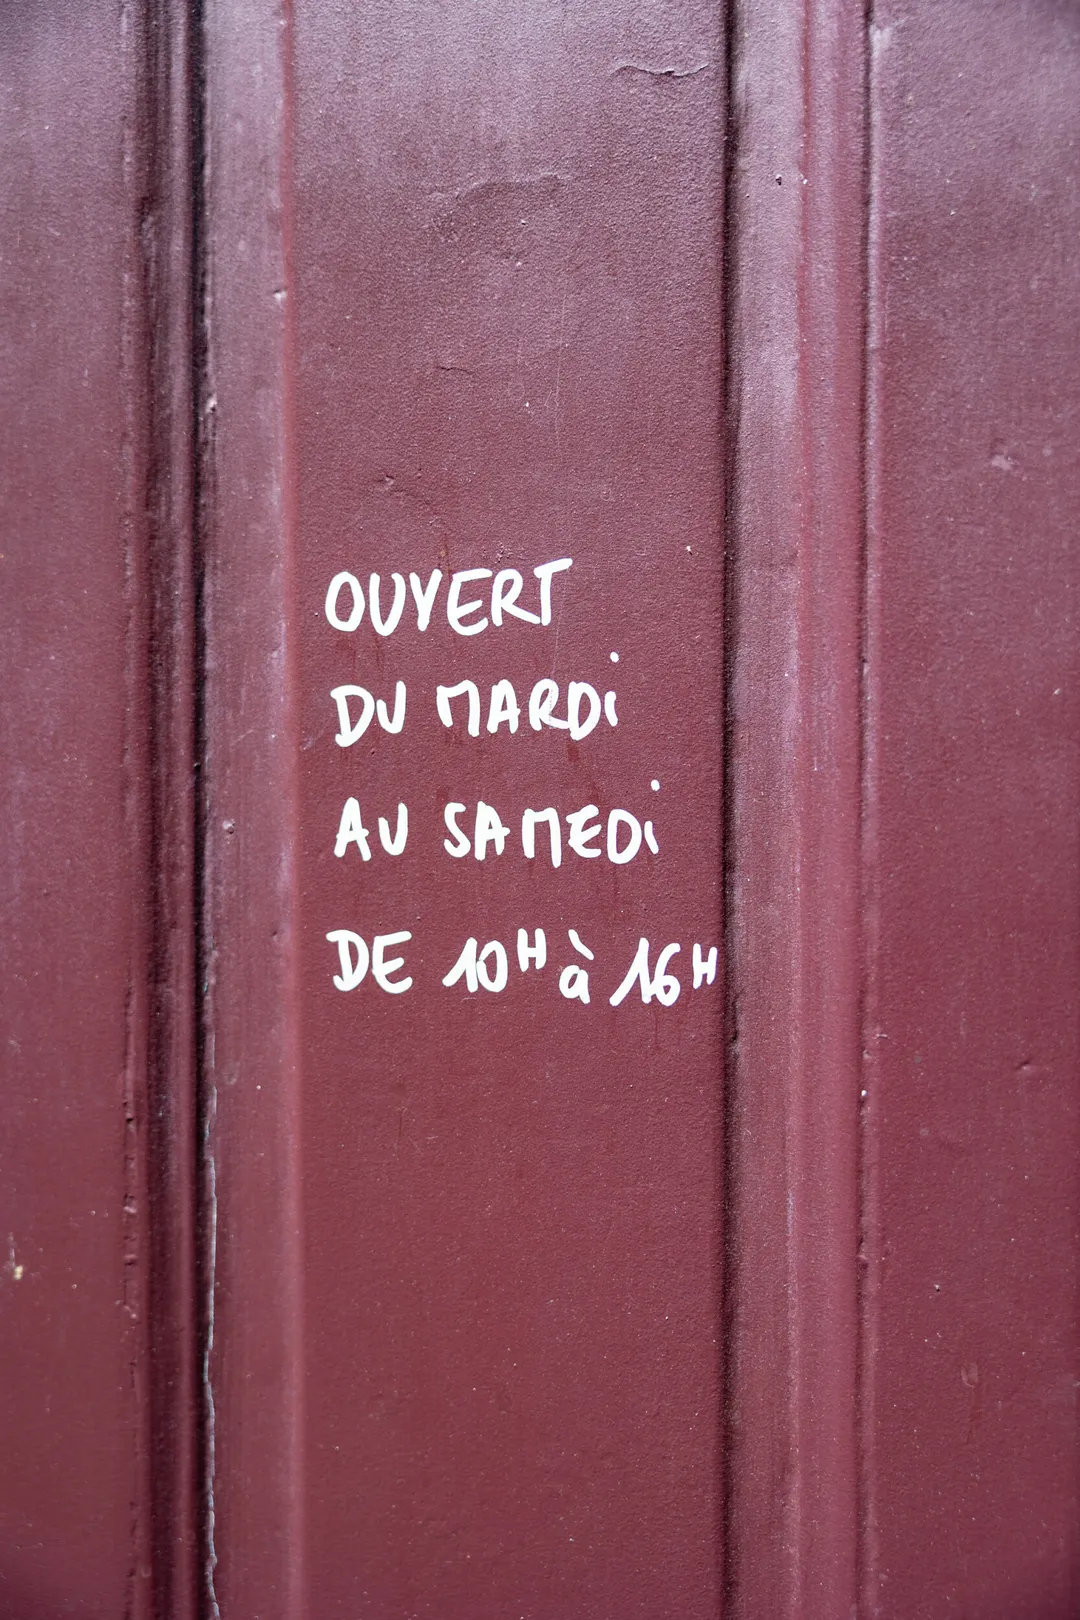 OUVERT
DU MARDi
AU SAMEDi
DE 10H à 16H